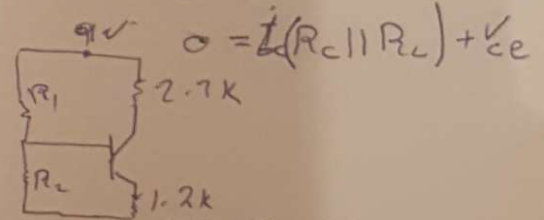 9V
o = i(Rc||RL) + Vce
R1
2.7K
R2
1.2K